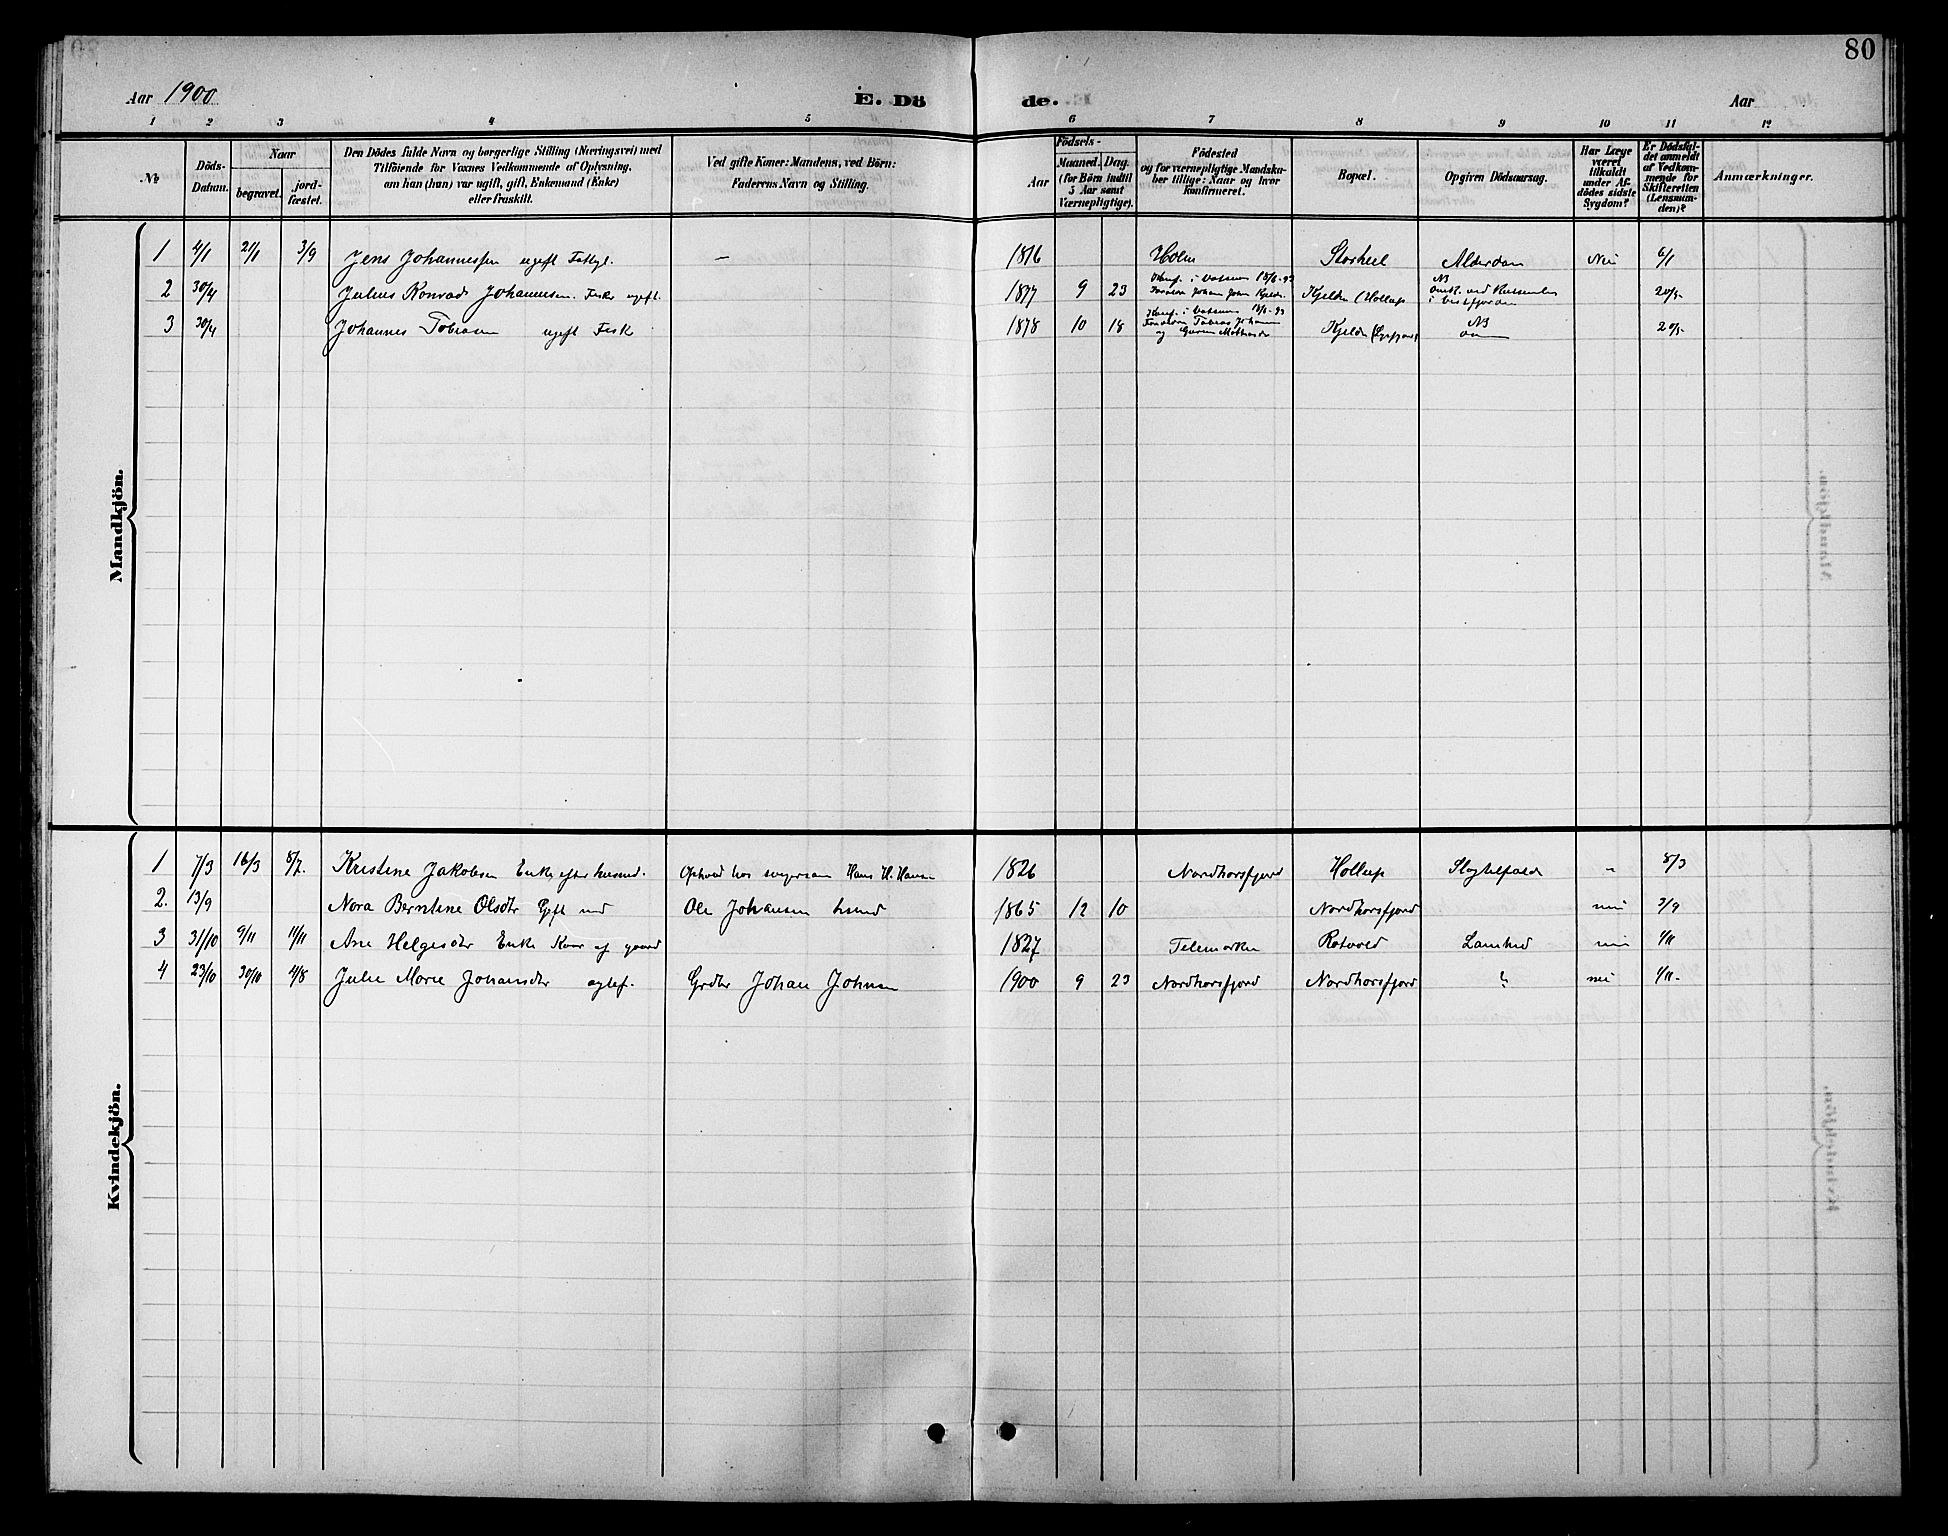 80
Aar 1900
E. Dö
de.
Aar
1 2 3 4 5 6 7 8 9 10 11 12
No
Döds-
Datum.
Naar
begravet.
jord-
fæstet.
Den Dödes fulde Navn og borgerlige Stilling (Næringsvei) med
Tilföiende for Voxnes Vedkommende af Oplysning,
om han (hun) var ugift, gift, Enkemand (Enke)
eller fraskilt.
Ved gifte Koner: Mandens, ved Börn:
Faderens Navn og Stilling.
Födsels-
Aar
Maaned.
Dag.
(for Börn indtil
5 Aar samt
Værnepligtige).
Födested
og for værnepligtige Mandska-
ber tillige: Naar og hvor
konfirmeret.
Bopæl.
Opgiven Dödsaarsag.
Har Læge
været
tilkaldt
under Af-
dödes sidste
Sygdom?
Er Dödsfal-
det anmeldt
af Vedkom-
mende for
Skifteretten
(Lensman-
den)?
Anmærkninger.
Mandkjön.
1 4/1 21/1 3/9 Jens Johannessen ugift - 1816 Holm Alderdom Nei 6/1
2 30/4 Julius Konrad Johannesen. Fisker ugift. 1877 9 23 Kjelden 20/5
3 30/4 Johannes Tobiasen ugift Fisk 1878 10 18 Kjelden NB 20/5
Kvindekjön.
1 7/3 16/3 8/7. Kristine Jakobsen Enke efter husmd. Ophold hos svigersøn Hans H. Hansen 1826 Nordhorsfjord Hollup 8/3
2. 13/9 Nora Berntine Olsdtr Gift med Ole Johansen 1865 12 10 Nordhorsfjord nei 3/9
3 31/10 9/11 11/11 Ane Helgesdtr Enke Kaar af gaard 1827 Telemarken Rotvold Lamhed nei 1/11
4 23/10 30/10 4/8 Julie Marie Johansdtr Grdbr Johan Johnsen 1900 9 23 Nordhorsfjord Nordhorsfjord ? nei 1/11.